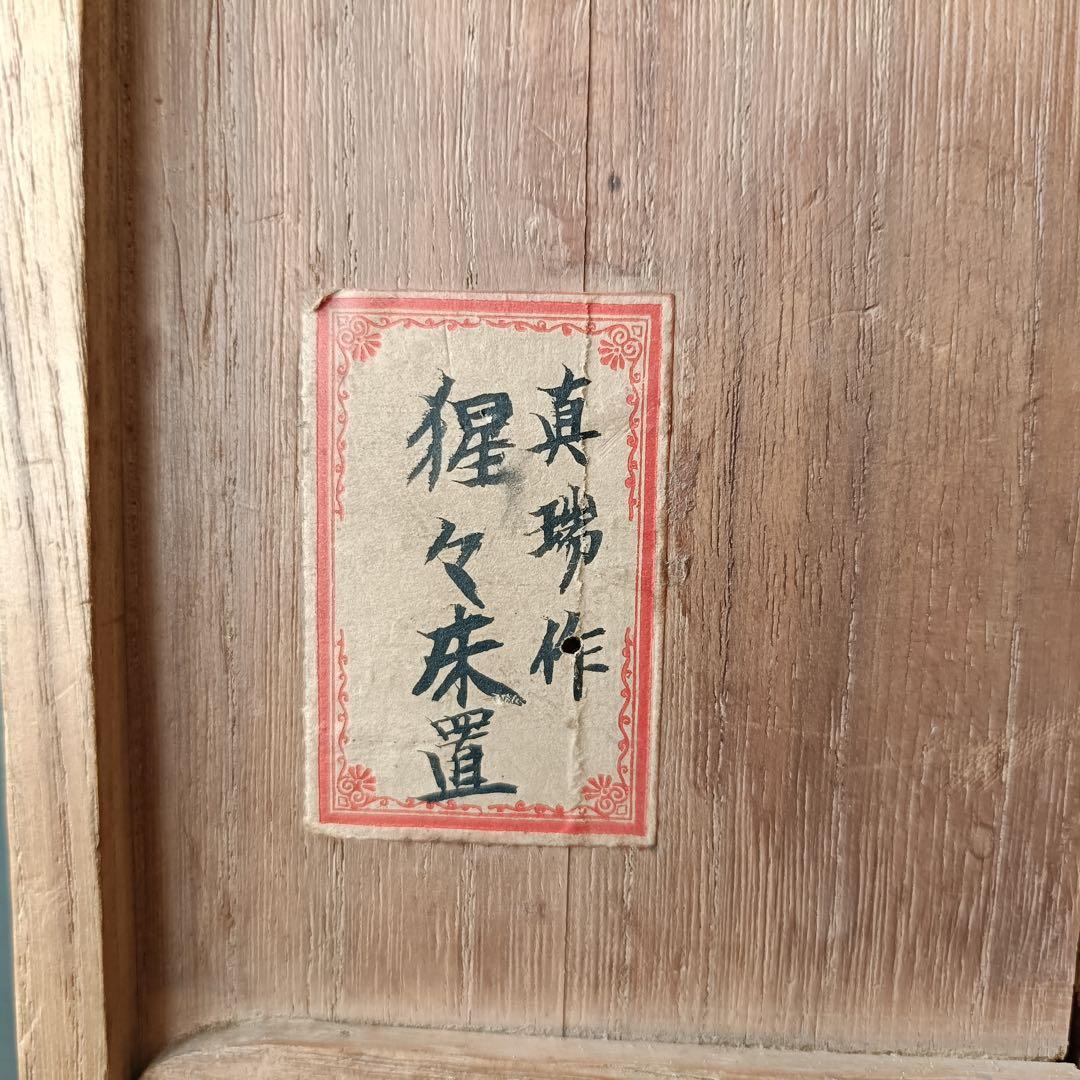 真瑞作
猩々床置